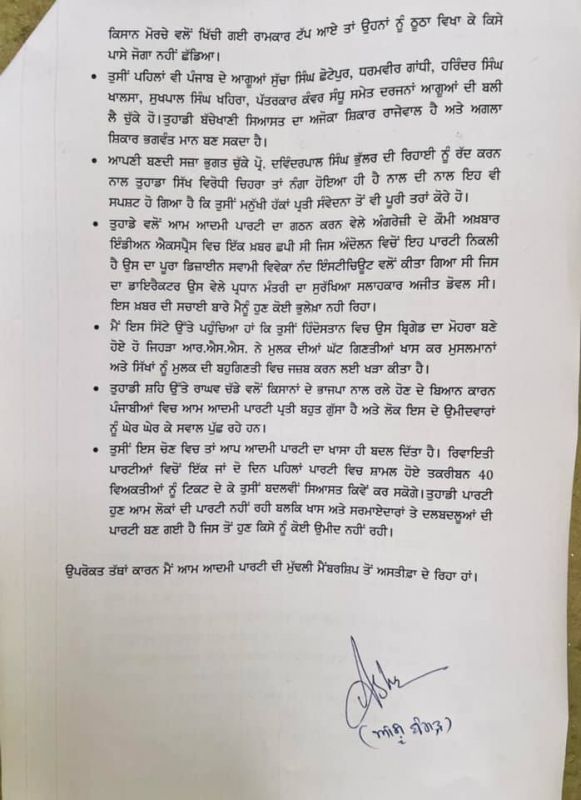 ਕਿਸਾਨ ਮੋਰਚੇ ਵਲੋਂ ਖਿੱਚੀ ਗਈ ਰਾਮਕਾਰ ਟੱਪ ਆਏ ਤਾਂ ਉਹਨਾਂ ਨੂੰ ਠੂਠਾ ਵਿਖਾ ਕੇ ਕਿਸੇ
ਪਾਸੇ ਜੋਗਾ ਨਹੀਂ ਛੱਡਿਆ।
• ਤੁਸੀਂ ਪਹਿਲਾਂ ਵੀ ਪੰਜਾਬ ਦੇ ਆਗੂਆਂ ਸੁੱਚਾ ਸਿੰਘ ਛੋਟੇਪੁਰ, ਧਰਮਵੀਰ ਗਾਂਧੀ, ਹਰਿੰਦਰ ਸਿੰਘ
ਖਾਲਸਾ, ਸੁਖਪਾਲ ਸਿੰਘ ਖਹਿਰਾ, ਪੱਤਰਕਾਰ ਕੰਵਰ ਸੰਧੂ ਸਮੇਤ ਦਰਜਨਾਂ ਆਗੂਆਂ ਦੀ ਬਲੀ
ਲੈ ਚੁੱਕੇ ਹੋ।ਤੁਹਾਡੀ ਬੱਚੇਖਾਣੀ ਸਿਆਸਤ ਦਾ ਅਜੋਕਾ ਸ਼ਿਕਾਰ ਰਾਜੇਵਾਲ ਹੈ ਅਤੇ ਅਗਲਾ
ਸ਼ਿਕਾਰ ਭਗਵੰਤ ਮਾਨ ਬਣ ਸਕਦਾ ਹੈ।
• ਆਪਣੀ ਬਣਦੀ ਸਜ਼ਾ ਭੁਗਤ ਚੁੱਕੇ ਪ੍ਰੋ. ਦਵਿੰਦਰਪਾਲ ਸਿੰਘ ਭੁੱਲਰ ਦੀ ਰਿਹਾਈ ਨੂੰ ਰੱਦ ਕਰਨ
ਨਾਲ ਤੁਹਾਡਾ ਸਿੱਖ ਵਿਰੋਧੀ ਚਿਹਰਾ ਤਾਂ ਨੰਗਾ ਹੋਇਆ ਹੀ ਹੈ ਨਾਲ ਦੀ ਨਾਲ ਇਹ ਵੀ
ਸਪਸ਼ਟ ਹੋ ਗਿਆ ਹੈ ਕਿ ਤੁਸੀਂ ਮਨੁੱਖੀ ਹੱਕਾਂ ਪ੍ਰਤੀ ਸੰਵੇਦਨਾ ਤੋਂ ਵੀ ਪੂਰੀ ਤਰਾਂ ਕੋਰੇ ਹੋ।
• ਤੁਹਾਡੇ ਵਲੋਂ ਆਮ ਆਦਮੀ ਪਾਰਟੀ ਦਾ ਗਠਨ ਕਰਨ ਵੇਲੇ ਅੰਗਰੇਜ਼ੀ ਦੇ ਕੌਮੀ ਅਖ਼ਬਾਰ
ਇੰਡੀਅਨ ਐਕਸਪ੍ਰੈਸ ਵਿਚ ਇੱਕ ਖ਼ਬਰ ਛਪੀ ਸੀ ਜਿਸ ਅੰਦੋਲਨ ਵਿਚੋਂ ਇਹ ਪਾਰਟੀ ਨਿਕਲੀ
ਹੈ ਉਸ ਦਾ ਪੂਰਾ ਡਿਜ਼ਾਈਨ ਸਵਾਮੀ ਵਿਵੇਕਾ ਨੰਦ ਇੰਸਟੀਚਿਊਟ ਵਲੋਂ ਕੀਤਾ ਗਿਆ ਸੀ ਜਿਸ
ਦਾ ਡਾਇਰੈਕਟਰ ਉਸ ਵੇਲੇ ਪ੍ਰਧਾਨ ਮੰਤਰੀ ਦਾ ਸੁਰੱਖਿਆ ਸਲਾਹਕਾਰ ਅਜੀਤ ਡੋਵਲ ਸੀ।
ਇਸ ਖ਼ਬਰ ਦੀ ਸਚਾਈ ਬਾਰੇ ਮੈਨੂੰ ਹੁਣ ਕੋਈ ਭੁਲੇਖਾ ਨਹੀ ਰਿਹਾ।
• ਮੈਂ ਇਸ ਸਿੱਟੇ ਉੱਤੇ ਪਹੁੰਚਿਆ ਹਾਂ ਕਿ ਤੁਸੀਂ ਹਿੰਦੋਸਤਾਨ ਵਿਚ ਉਸ ਬ੍ਰਿਗੇਡ ਦਾ ਮੋਹਰਾ ਬਣੇ
ਹੋਏ ਹੋ ਜਿਹੜਾ ਆਰ.ਐਸ.ਐਸ. ਨੇ ਮੁਲਕ ਦੀਆਂ ਘੱਟ ਗਿਣਤੀਆਂ ਖਾਸ ਕਰ ਮੁਸਲਮਾਨਾਂ
ਅਤੇ ਸਿੱਖਾਂ ਨੂੰ ਮੁਲਕ ਦੀ ਬਹੁਗਿਣਤੀ ਵਿਚ ਜਜ਼ਬ ਕਰਨ ਲਈ ਖੜਾ ਕੀਤਾ ਹੈ।
• ਤੁਹਾਡੀ ਸ਼ਹਿ ਉੱਤੇ ਰਾਘਵ ਚੱਡੇ ਵਲੋਂ ਕਿਸਾਨਾਂ ਦੇ ਭਾਜਪਾ ਨਾਲ ਰਲੇ ਹੋਣ ਦੇ ਬਿਆਨ ਕਾਰਨ
ਪੰਜਾਬੀਆਂ ਵਿਚ ਆਮ ਆਦਮੀ ਪਾਰਟੀ ਪ੍ਰਤੀ ਬਹੁਤ ਗੁੱਸਾ ਹੈ ਅਤੇ ਲੋਕ ਇਸ ਦੇ ਉਮੀਦਵਾਰਾਂ
ਨੂੰ ਘੇਰ ਘੇਰ ਕੇ ਸਵਾਲ ਪੁੱਛ ਰਹੇ ਹਨ।
• ਤੁਸੀਂ ਇਸ ਚੋਣ ਵਿਚ ਤਾਂ ਆਪ ਆਦਮੀ ਪਾਰਟੀ ਦਾ ਖਾਸਾ ਹੀ ਬਦਲ ਦਿੱਤਾ ਹੈ। ਰਿਵਾਇਤੀ
ਪਾਰਟੀਆਂ ਵਿਚੋਂ ਇੱਕ ਜਾਂ ਦੋ ਦਿਨ ਪਹਿਲਾਂ ਪਾਰਟੀ ਵਿਚ ਸ਼ਾਮਲ ਹੋਏ ਤਕਰੀਬਨ 40
ਵਿਅਕਤੀਆਂ ਨੂੰ ਟਿਕਟ ਦੇ ਕੇ ਤੁਸੀਂ ਬਦਲਵੀਂ ਸਿਆਸਤ ਕਿਵੇਂ ਕਰ ਸਕੋਗੇ।ਤੁਹਾਡੀ ਪਾਰਟੀ
ਹੁਣ ਆਮ ਲੋਕਾਂ ਦੀ ਪਾਰਟੀ ਨਹੀਂ ਰਹੀ ਬਲਕਿ ਖਾਸ ਅਤੇ ਸਰਮਾਏਦਾਰਾਂ ਤੇ ਦਲਬਦਲੂਆਂ ਦੀ
ਪਾਰਟੀ ਬਣ ਗਈ ਹੈ ਜਿਸ ਤੋਂ ਹੁਣ ਕਿਸੇ ਨੂੰ ਕੋਈ ਉਮੀਦ ਨਹੀਂ ਰਹੀ।
ਉਪਰੋਕਤ ਤੱਥਾਂ ਕਾਰਨ ਮੈਂ ਆਮ ਆਦਮੀ ਪਾਰਟੀ ਦੀ ਮੁੱਢਲੀ ਮੈਂਬਰਸ਼ਿਪ ਤੋਂ ਅਸਤੀਫ਼ਾ ਦੇ ਰਿਹਾ ਹਾਂ।
(ਆਸ਼ੂ ਬੰਗੜ)